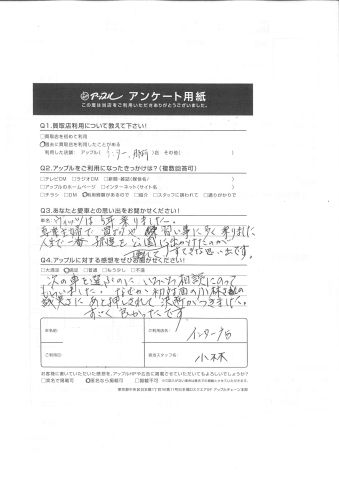 アップル アンケート用紙
この度は当店をご利用いただきありがとうございました。
Q1.買取店利用について教えて下さい!
□買取店を初めて利用
□過去に買取店を利用したことがある
利用した店舗: アップル( )店 その他( )
Q2.アップルをご利用になったきっかけは?(複数回答可)
□テレビCM □ラジオCM □新聞・雑誌(媒体名/ )
□アップルのホームページ □インターネット(サイト名 )
□チラシ □DM □利用経験があるので □紹介 □スタッフに誘われて □通りがかりで
Q3.あなたと愛車との思い出をお聞かせください!
車名: ヴィッツは5年乗りました。
練習い事に多く乗りました
人生で一番 桜道を公園に出かけたのが
すてきな思い出です。
Q4.アップルに対する感想をぜひお聞かせください!
□大満足 □満足 □普通 □もう少し □不満
次の車を選ぶのに いろいろ相談にのって
もらいました。なぜか初対面の小林さんの
誠実さに あと押しされて 決断がつきました。
すごく良かったです
お名前: ご利用店名: インター店
ご利用日: 担当スタッフ名: 小林
お客様に書いていただいた感想を、アップルHPや広告に掲載させていただいてもよろしいでしょうか?
□実名で掲載可 □匿名なら掲載可 □掲載不可